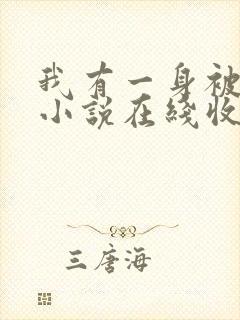 我有一身被
小説在綫收
三唐海